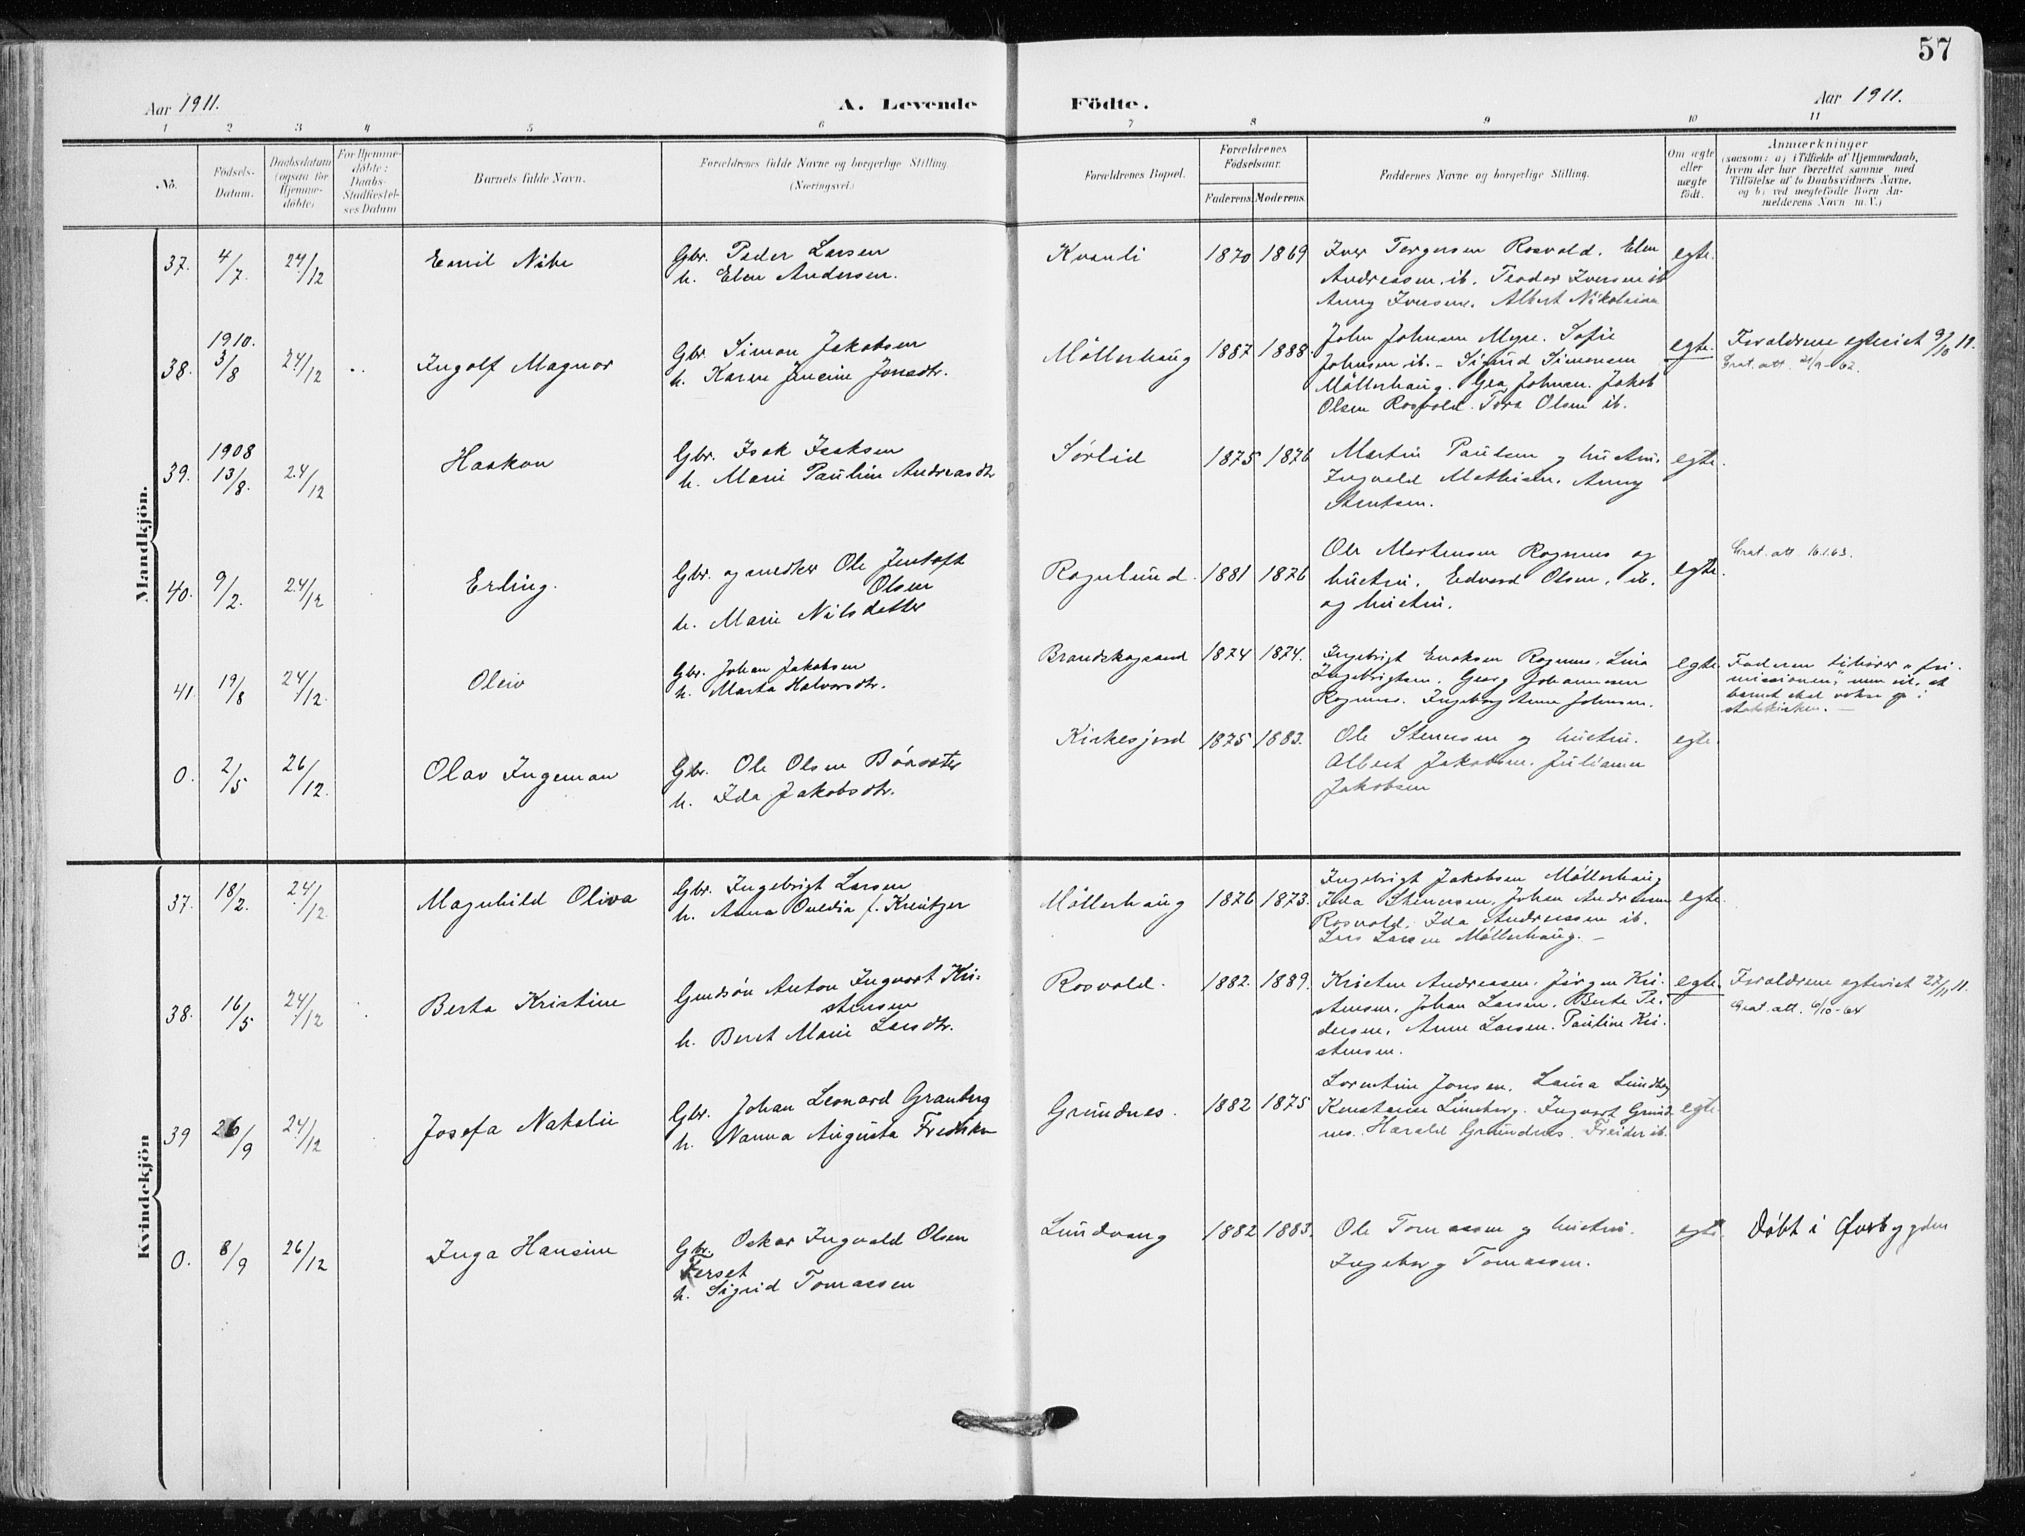 57
Aar 1911.
A. Levende Födte.
Aar 1911.
1 2 3 4 5 6 7 8 9 10 11
No.
Födsels-
Datum.
Daabsdatum
(ogsaa for
Hjemme-
döbte)
For Hjemme-
döbte:
Daabs-
Stadfæstel-
ses Datum
Barnets fulde Navn.
Forældrenes fulde Navne og borgerlige Stilling
(Næringsvei.)
Forældrenes Bopæl.
Forældrenes
Födselsaar.
Faderens. Moderens.
Faddernes Navne og borgerlige Stilling.
Om ægte
eller
uægte
födt.
Anmærkninger
(saasom: a) i Tilfælde af Hjemmedaab,
hvem der har forrettet samme med
Tilföielse af to Daabsvidners Navne,
og b) ved uegtefödte Börn An-
melderens Navn m.V.)
Mandkjön.
37. 4/7. 24/12 Emil Gbr. Peder Larsen
h. Elen Andersen.
Kvanli 1870 1869 Iver Torgersen Rosvold. Elen
Andreassen, ib. Teodor Iversen ib
Anny Iversen. Albert Nikolaisen
egte.
1910.
38. 3/8 24/12 Ingolf Magnor Gbr. Simon Jakobsen
h. Karen Jensine Jonsdtr.
Möllerhaug 1887 1888. John Johnsen Moen. Sofie
Johnsen, ib. - Sigurd Simonsen
Möllerhaug. Gea Johnsen. Jakob
Olsen Rosvold. Tora Olsen ib.
egte. Foreldrene egteviet 9/10 11.
Grat. att. 21/9-62.
1908
39. 13/8. 24/12 Haakon Gbr. Isak Isaksen
h. Marie Pauline Andreasdtr
Sørlid 1875 1876 Martin Paulsen og hustru.
Ingvald Mathisen. Anny
Stentsen.
egte.
40. 9/2. 24/12 Erling. Gbr. og smedker Ole Jentoft
Olsen
h. Marie Nilsdatter
Rognlund. 1881 1876 Ole Mortensen Rognmo og
hustru. Edvard Olsen, ib.
og hustru.
egte. Grat. att. 16.1.63.
41. 19/8 24/12. Oleiv Gbr. Johan Jakobsen
h. Marta Halvorsdtr.
Brandskognand 1874 1874. Ingebrigt Eriksen Rognmo. Lina
Ingebrigtsen. Georg Johannesen
Rognmo. Ingeborg Anna Johnsen.
egte Faderen tilhører „fri-
missionen“, men vil, at
barnet skal vokse op i
statskirken. —
0. 2/5 26/12. Olav Ingeman Gbr. Ole Olsen Bönsæter
h. Ida Jakobsdtr.
Kirkesjord 1875 1883. Ole Stenersen og hustru.
Albert Jakobsen. Julianna
Jakobsen
egte.
Kvindekjön
37. 18/2. 24/12. Magnhild Oliva Gbr. Ingebrigt Larsen
h. Anna Ovedia f. Kreutzer
Möllerhaug 1876 1873. Ingebrigt Jakobsen Möllerhaug
Ida Stenersen. Johan Andreassen
Rosvold. Ida Andreassen ib.
Lars Larsen Möllerhaug. —
egte.
38. 16/5 24/12 Berta Kristine Gaardsön Anton Ingvart Kri-
stensen
h. Beret Marie Larsdtr.
Rosvold. 1882. 1889. Kristen Andreassen. Jörgen Kri-
stensen. Johan Larsen. Berte Pe-
dersen. Anne Larsen. Pauline Kri-
stensen.
egte. Foreldrene egteviet 27/11 11.
Grat. att. 6/10-64
39 26/9 24/12 Josefa Natalie Gbr. Johan Leonard Granberg
h. Nanna Augusta
Grundnes. 1882 1875 Lorentine Jonsen. Laura Lundberg
Konstanse Lundberg. Ingvart Grund-
nes. Harald Grundnes. ib.
egte
0. 8/9 26/12 Inga Hansine Gbr. Oskar Ingvald Olsen
Ferset
h. Sigrid Tomassen
Lundvang 1882 1883. Ole Tomassen og hustru.
Ingeborg Tomassen.
egte. Döbt i Øverbygden